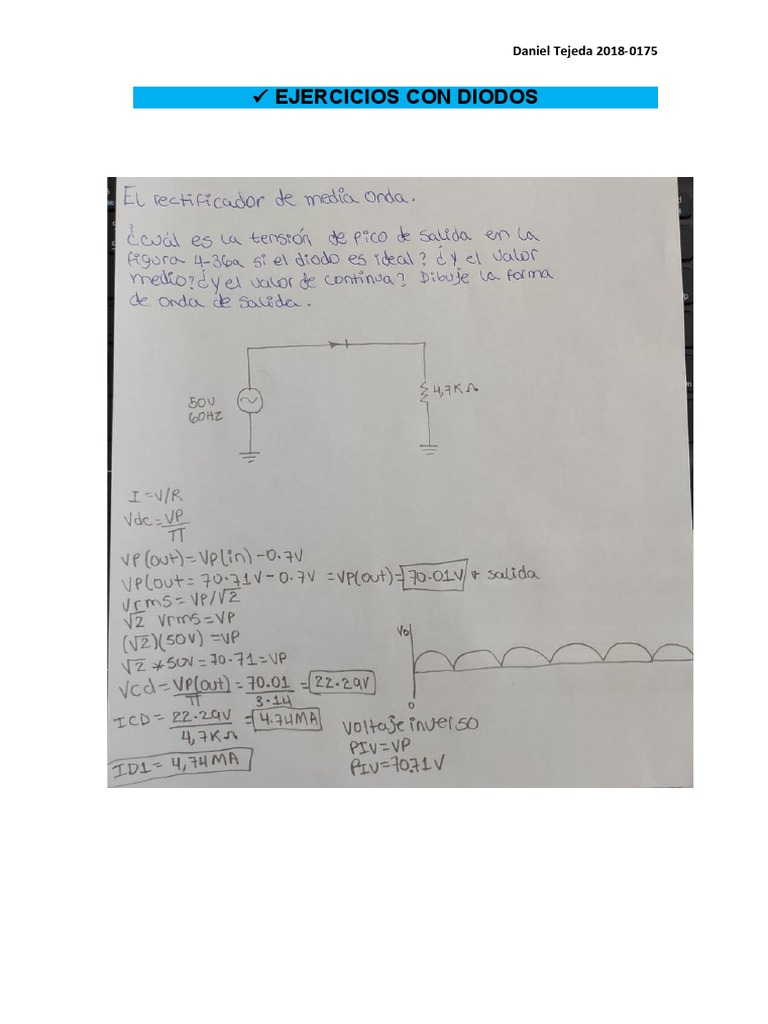 Daniel Tejeda 2018-0175
✓ EJERCICIOS CON DIODOS
El rectificador de media onda.
¿cuál es la tensión de pico de salida en la
figura 4-36a si el diodo es ideal? ¿y el valor
medio? ¿y el valor de continua? Dibuje la forma
de onda de salida.
50V
60HZ
4,7KΩ
I=V/R
Vdc=VP/π
VP(out)=VP(in)-0.7V
VP(out= 70.71V-0.7V =VP(out)=70.01V → salida
Vrms=VP/√2
√2 Vrms=VP
(√2)(50V)=VP
√2 *50V=70.71=VP
Vcd=VP(out)/π=70.01/3.14=22.29V
ICD=22.29V/4,7KΩ=4.74MA
ID1=4,74MA
Vo
0
Voltaje inverso
PIV=VP
PIV=70.71V